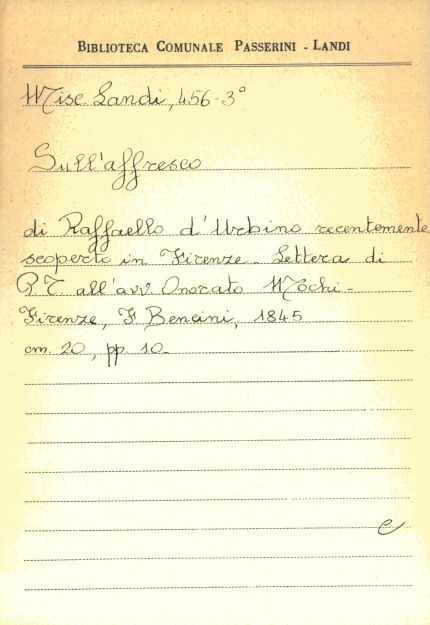 BIBLIOTECA COMUNALE PASSERINI - LANDI
Misc. Landi, 456-3°
Sull'affresco
di Raffaello d'Urbino recentemente
scoperto in Firenze - Lettera di
P. T. all'avv. Onorato Mochi -
Firenze, F. Bencini, 1845
cm. 20, pp. 10-
e